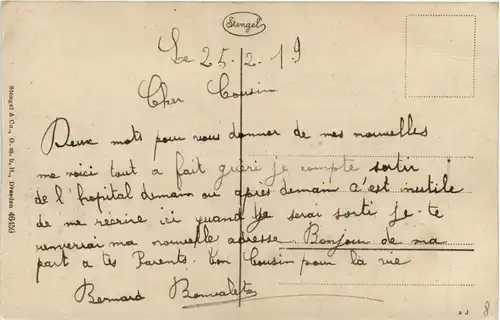 Stengel
Le 25-2-19
Cher Cousin
Deux mots pour vous donner de mes nouvelles
me voici tout a fait guéri je compte sortir
de l'hopital demain ou après demain c'est inutile
de me recrire ici quand je serai sorti je te
renverrai ma nouvelle adresse Bonjour de ma
part a tes Parents. Ton Cousin pour la vie
Bernard
Stengel & Co., G. m. b. H., Dresden
8